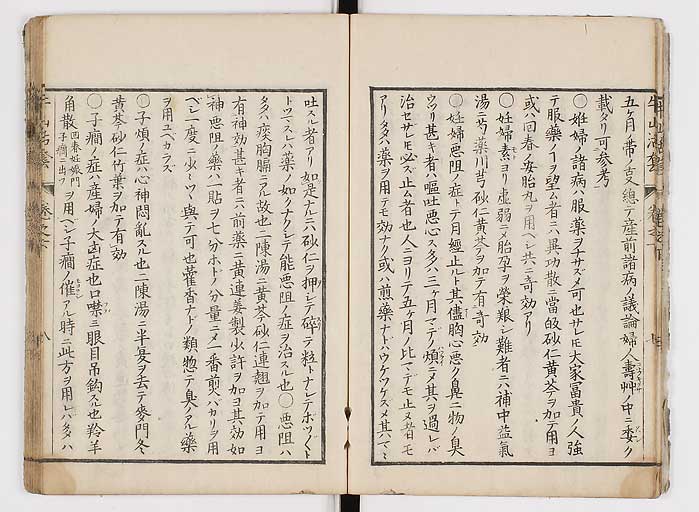 五ケ月帯ノ支總テ産前諸病ノ議論婦人壽艸ノ中ニ委ク
載タリ可參考
〇姙婦ノ諸病ハ服藥ヲナサズメ可也サレモ大家冨貴ノ人強
テ服藥ノ一ヲ望ム者ニハ異功散ニ當皈砂仁黄芩ヲ加テ用ヨ
或ハ回春ノ安胎丸ヲ用ベシ共ニ奇効アリ
〇妊婦素ヨリ虚弱ニメ胎孕ヲ榮艱シ難者ニハ補中益氣
湯ニ芍藥川芎砂仁黄芩ヲ加テ有奇効
〇妊婦悪阻ノ症トテ月經止ルト其儘胸心悪ク鼻ニ物ノ臭
ウツリ甚キ者ハ嘔吐悪心ス多ハ三ケ月マデノ煩ニメ其ヲ過レバ
治セサレモ必ズ止ム者也人ニヨリテ五ケ月ノ比マデモ止ヌ者モ
アリ多ハ藥ヲ用テモ効ナク或ハ煎藥ナドハウケツケスメ其ハヽニ
吐スル者アリ如是ナルニハ砂仁ヲ押シテ碎テ粒トナシテボツ〱ト
トツマスレハ藥ノ如クナクシテ能悪阻ノ症ヲ治スル也〇悪阻ハ
多ハ痰胸膈ニアル故也二陳湯ニ黄芩砂仁連翹ヲ加テ用ヨ
有神効甚キ者ニハ前藥ニ黄連姜製少許ヲ加ヨ其効如
神悪阻ノ藥ハ一貼ヲ七分ホトノ分量ニメ一番煎バカリヲ用
ベシ二度ニ少ツヽ與テ可也藿香ナドノ類惣テ臭ノアル藥
ヲ用ユベカラズ
〇子煩ノ症ハ心神悶亂スル也二陳湯ニ半夏ヲ去テ麥門冬
黄芩砂仁竹葉ヲ加テ有効
〇子癇ノ症ハ産婦ノ大凶症也口噤ミ眼目吊釣スル也羚羊
角散 回春妊娠門子癇ニ出ツ ヲ用ベシ子癇ノ催アル時ニ此方ヲ用レバ多ハ